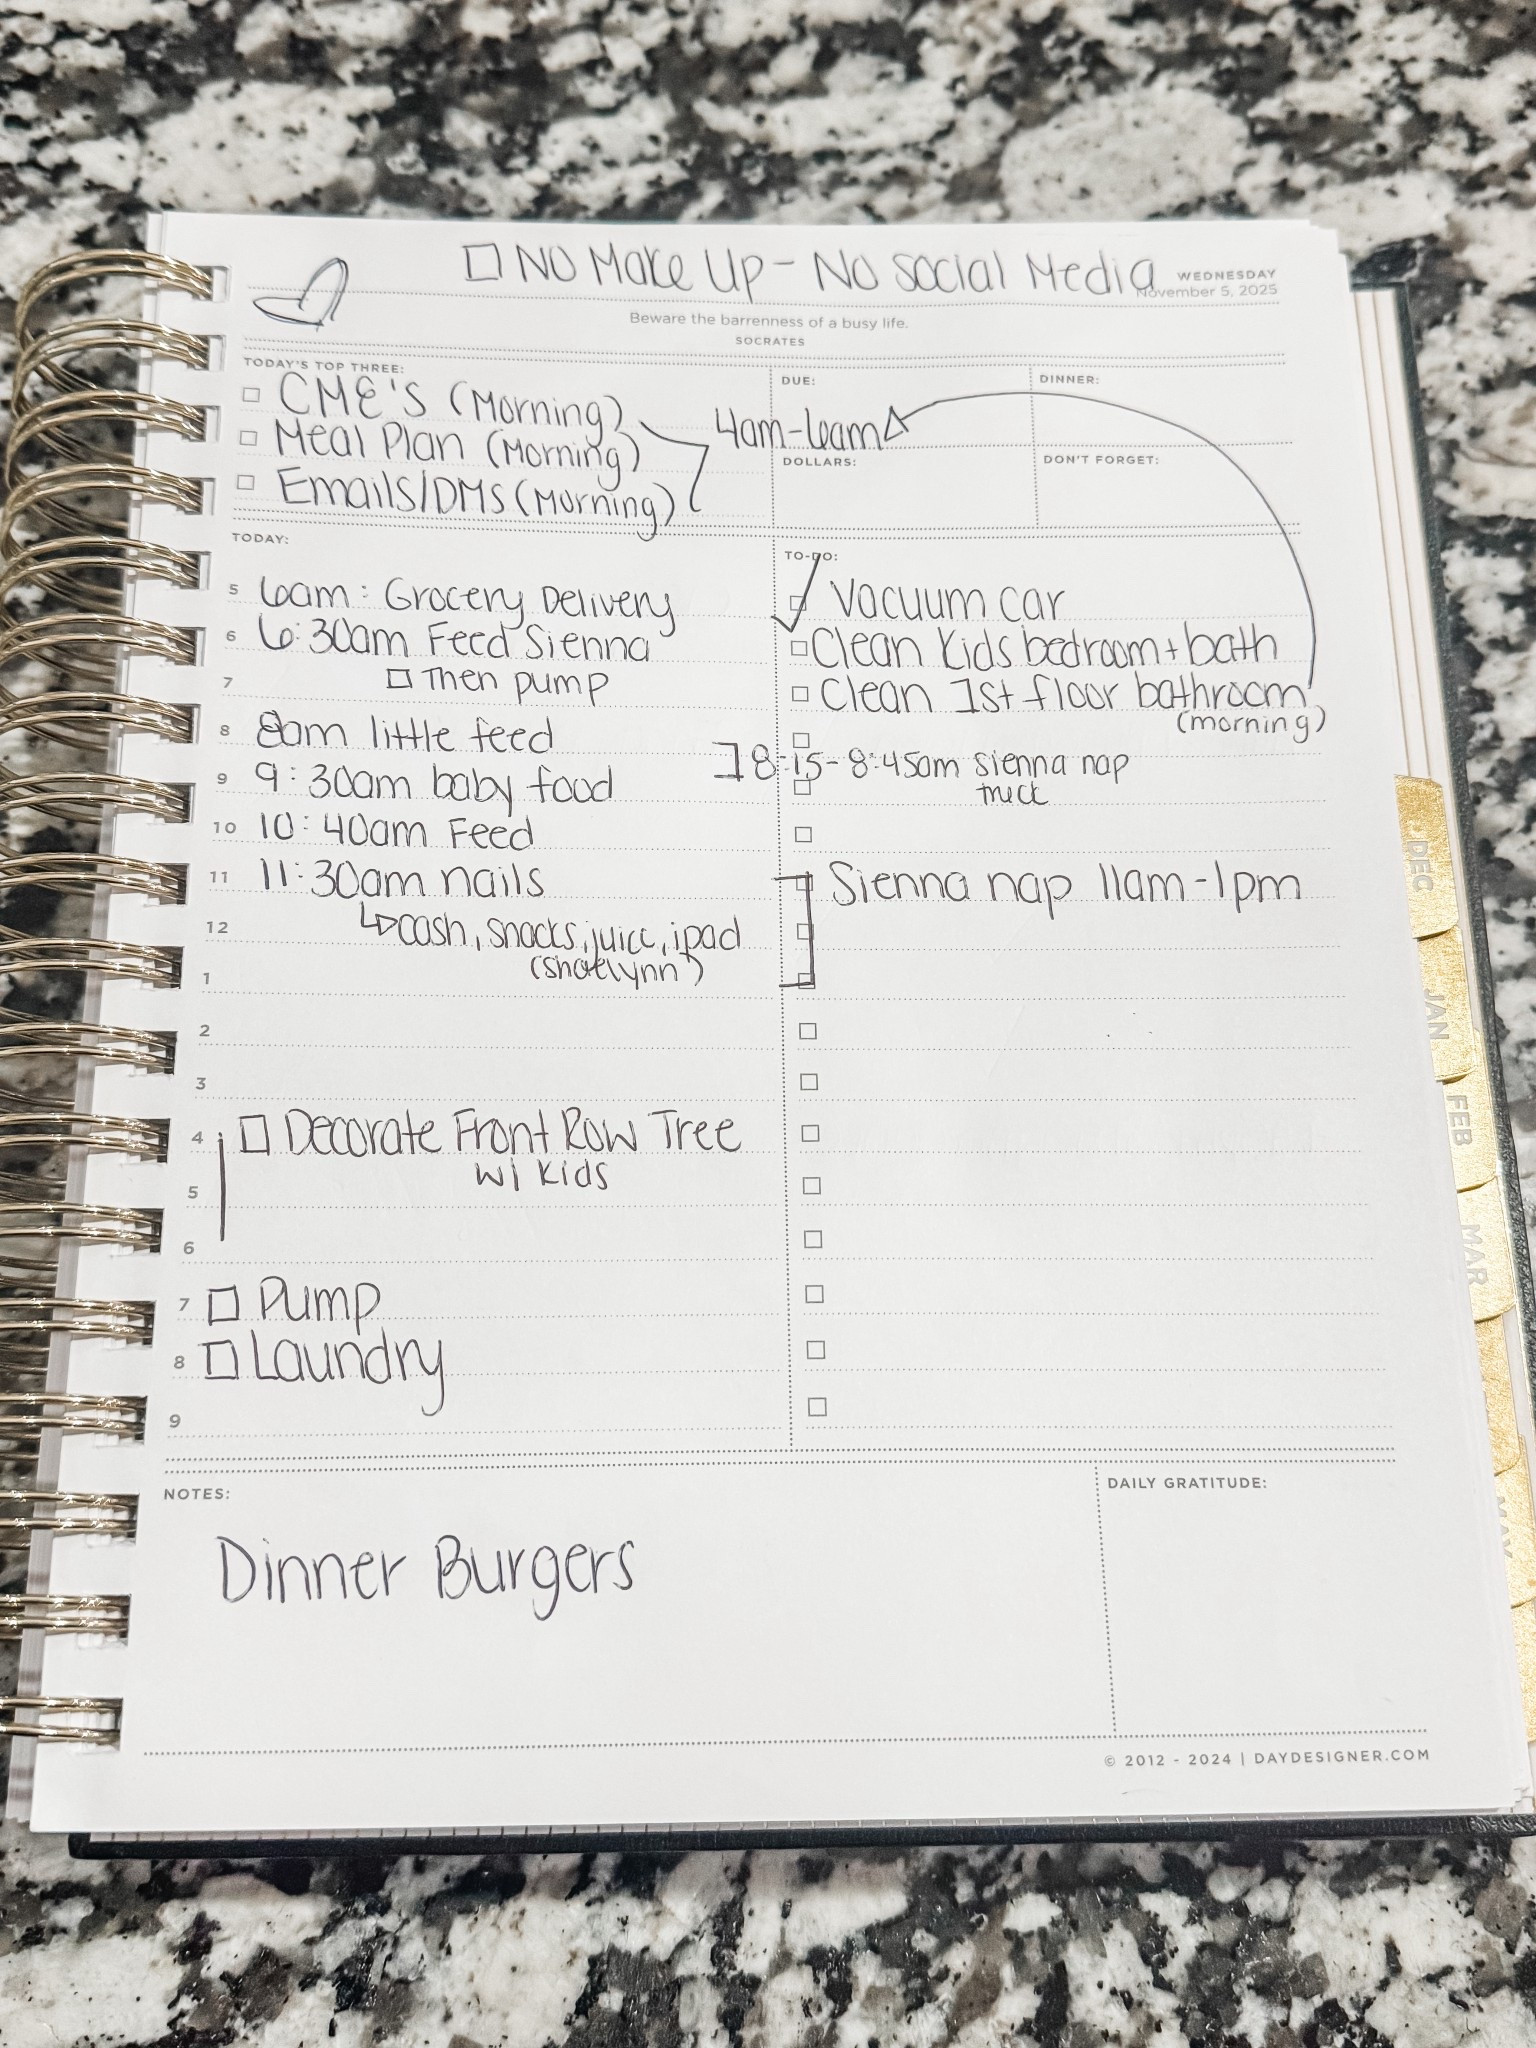 □ No Make Up - No Social Media
WEDNESDAY
November 5, 2025
Beware the barrenness of a busy life.
SOCRATES
TODAY'S TOP THREE:
□ CME's (Morning)
□ Meal Plan (Morning)
□ Emails/DMs (Morning)
4am-6am
DUE:
DINNER:
DOLLARS:
DON'T FORGET:
TODAY:
5 6am: Grocery Delivery
6 6:30am Feed Sienna
7 □ Then pump
8 8am little feed
9 9:30am baby food
10 10:40am Feed
11 11:30am nails
12 ↳ cash, snacks, juice, ipad
1 (shaelynn)
2
3
4 □ Decorate Front Row Tree
5 w/ kids
6
7 □ Pump
8 □ Laundry
9
TO-DO:
Vacuum car
□ Clean Kids bedroom + bath
□ Clean 1st floor bathroom
(morning)
8:15-8:45am Sienna nap
truck
Sienna nap 11am-1pm
NOTES:
Dinner Burgers
DAILY GRATITUDE:
© 2012 - 2024 | DAYDESIGNER.COM
DEC
JAN
FEB
MAR
MAY